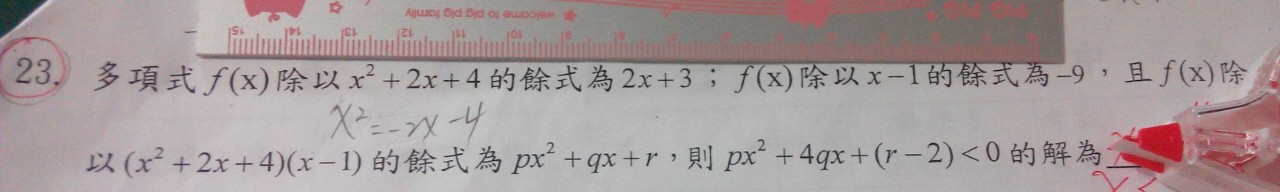 welcome to pig pig family
PIG PIG
15 14 13 12 11 10 9 8 7
23. 多項式 f(x) 除以 x² + 2x + 4 的餘式為 2x + 3；f(x) 除以 x − 1 的餘式為 −9，且 f(x) 除
x² = −2x −4
以 (x² + 2x + 4)(x − 1) 的餘式為 px² + qx + r，則 px² + 4qx + (r − 2) < 0 的解為